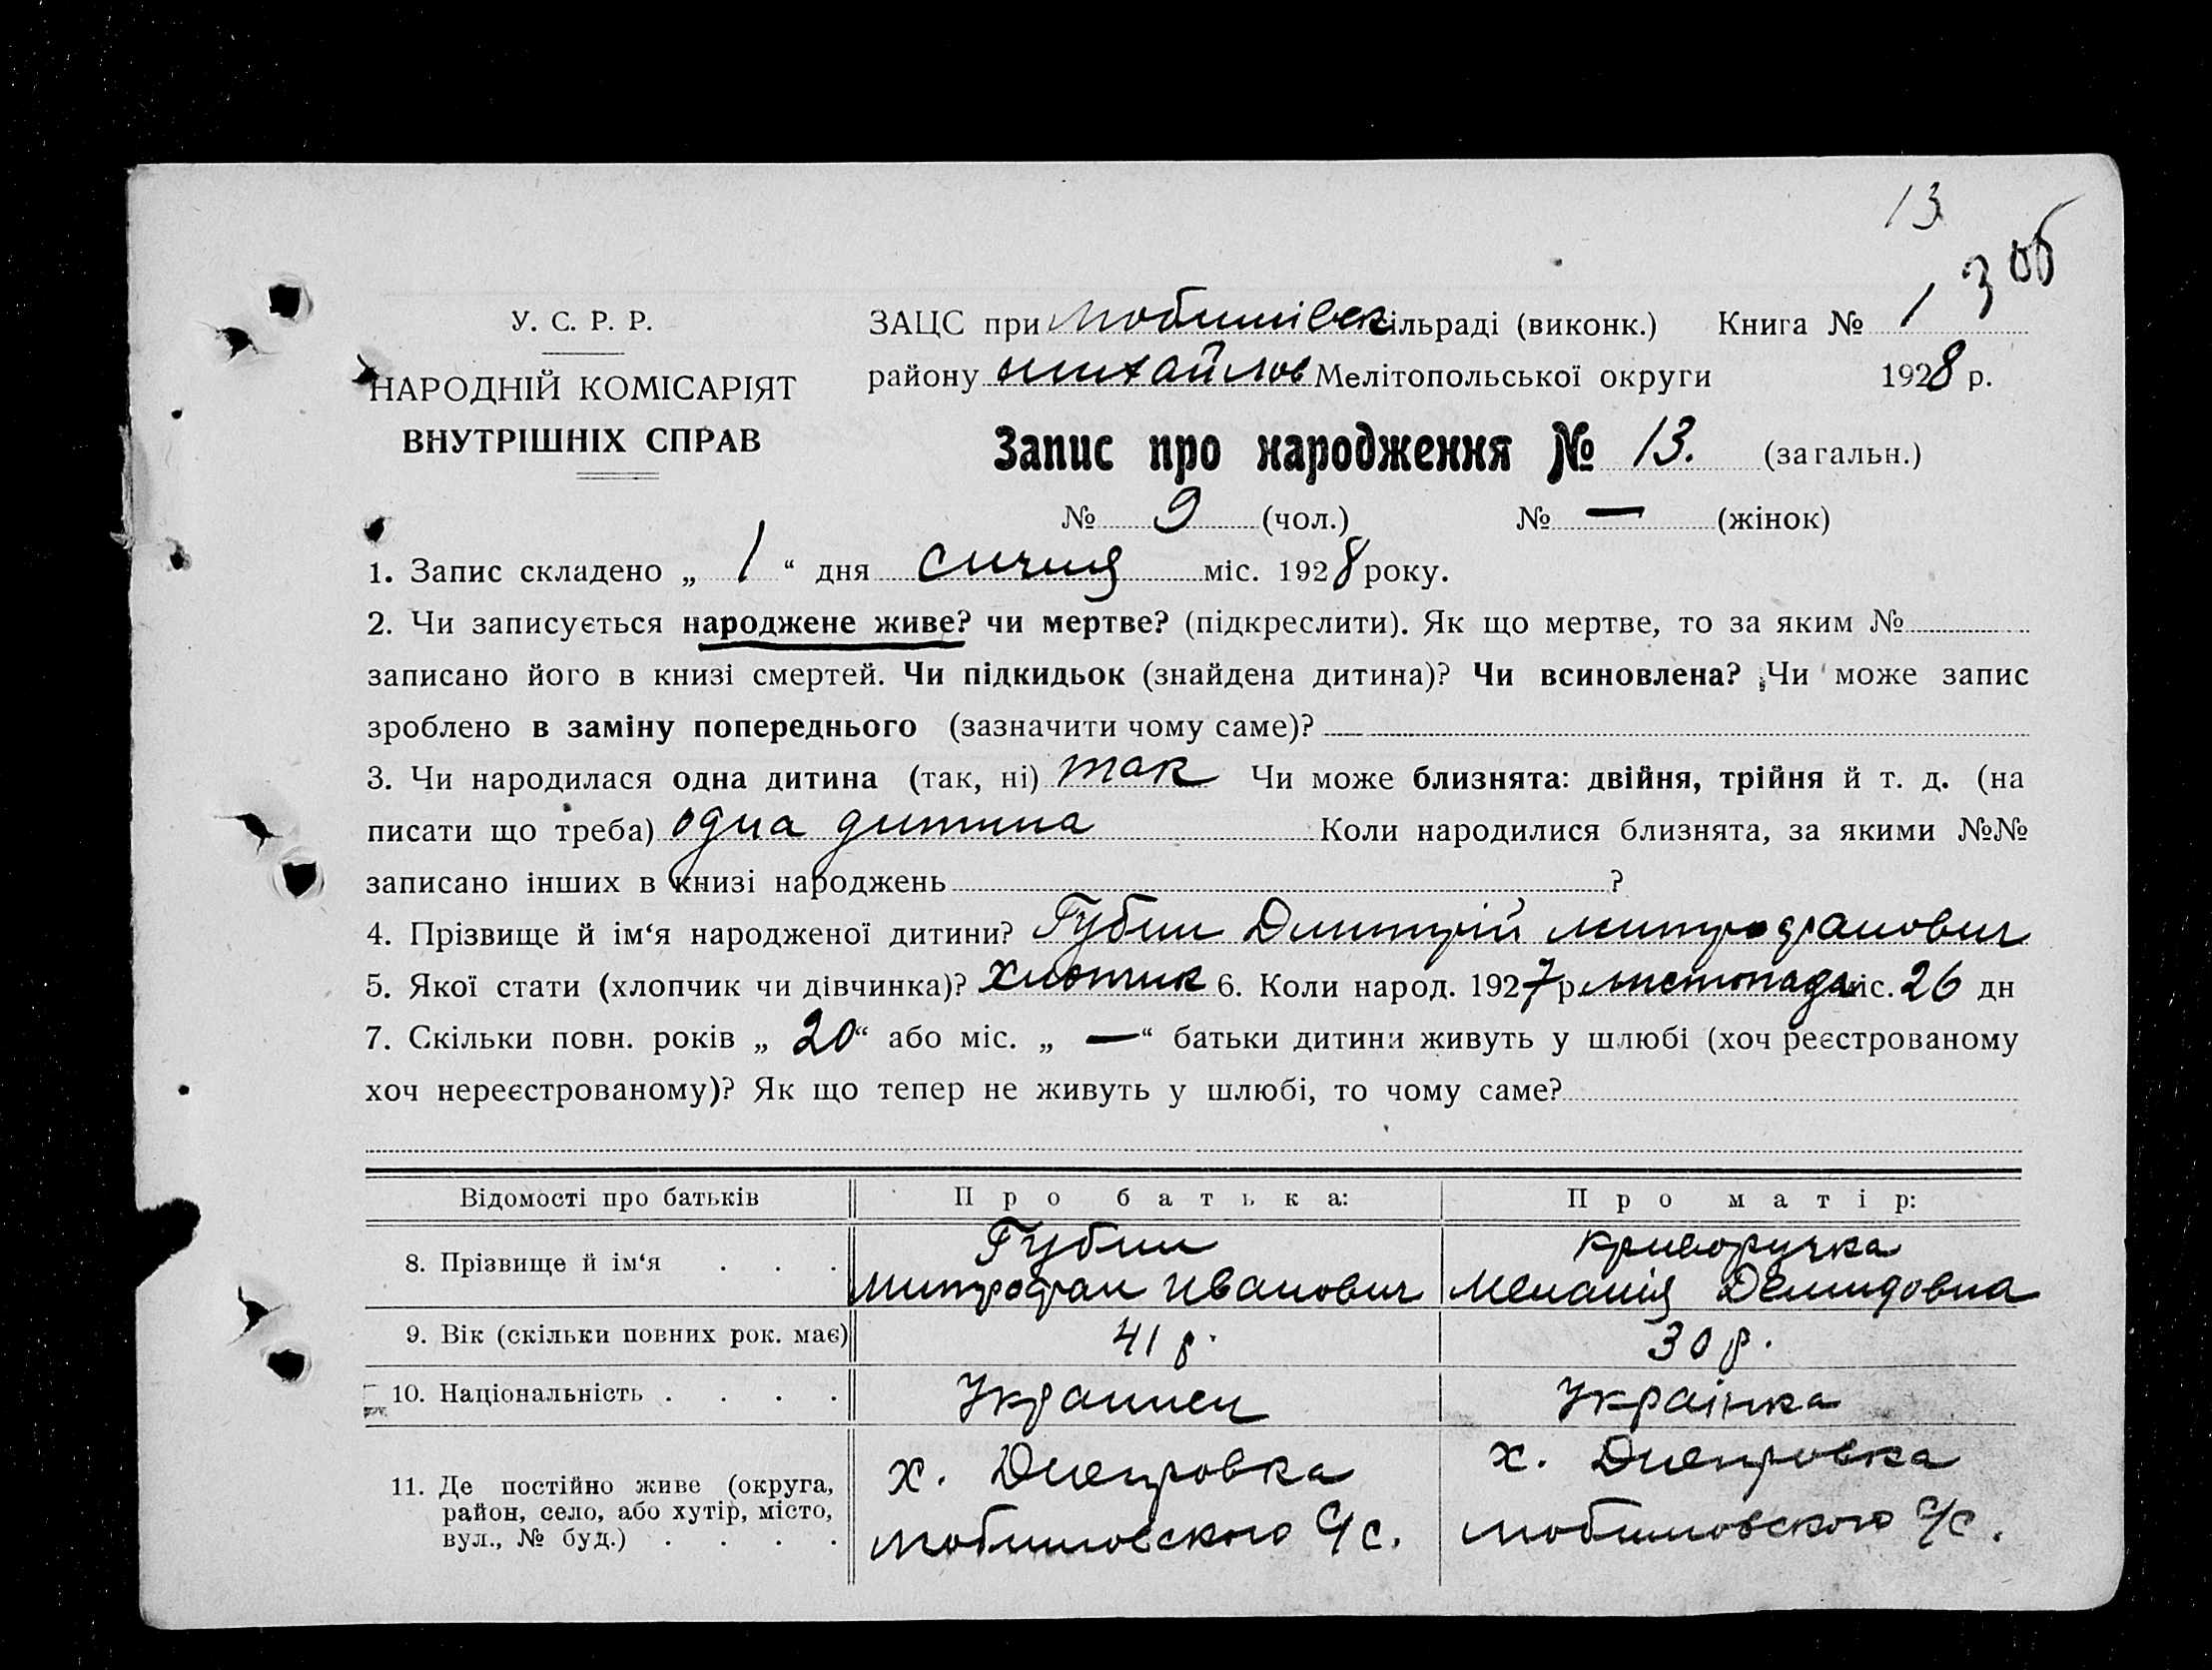 13
13 об
У. С. Р. Р.
НАРОДНІЙ КОМІСАРІЯТ
ВНУТРІШНІХ СПРАВ
ЗАЦС при сільраді (виконк.) Книга № 1
району михайлов Мелітопольської округи 1928 р.
Запис про народження № 13. (загальн.)
№ 9 (чол.) № — (жінок)
1. Запис складено „ 1 “ дня сичня міс. 1928 року.
2. Чи записується народжене живе? чи мертве? (підкреслити). Як що мертве, то за яким №
записано його в книзі смертей. Чи підкидьок (знайдена дитина)? Чи всиновлена? Чи може запис
зроблено в заміну попереднього (зазначити чому саме)?
3. Чи народилася одна дитина (так, ні) так Чи може близнята: двійня, трійня й т. д. (на
писати що треба) одна дитина Коли народилися близнята, за якими №№
записано інших в книзі народжень ?
4. Прізвище й ім‘я народженої дитини? Губин Дмитрій митрофанович
5. Якої стати (хлопчик чи дівчинка)? 6. Коли народ. 1927 р. листопада міс. 26 дн
7. Скільки повн. років „ 20 “ або міс. „ — “ батьки дитини живуть у шлюбі (хоч реєстрованому
хоч нереєстрованому)? Як що тепер не живуть у шлюбі, то чому саме?
Відомості про батьків Про батька: Про матір:
8. Прізвище й ім‘я . . . Губин митрофан Иванович криворучка Меланія Демидовна
9. Вік (скільки повних рок. має) 41 р. 30 р.
10. Національність . . . . Украинец Українка
11. Де постійно живе (округа, район, село, або хутір, місто, вул., № буд.) . . . . х. Днепровка С/с. х. Днепровка с/с.